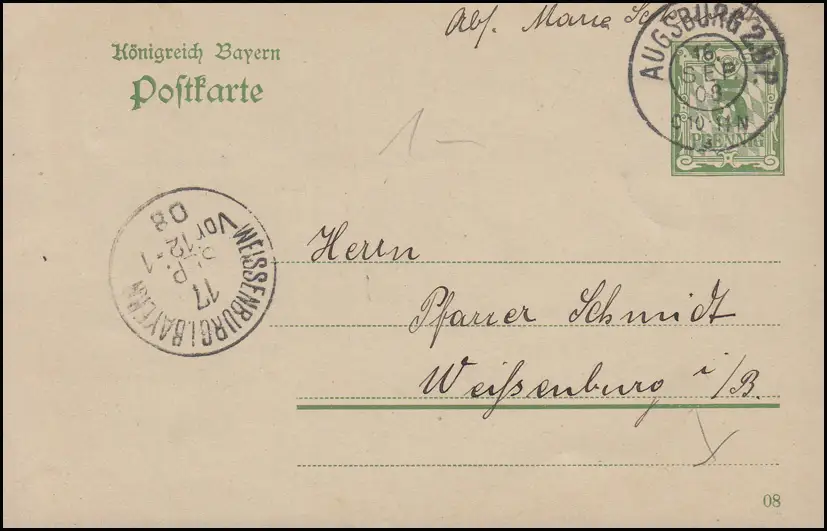 Abs. Marie
Königreich Bayern
Postkarte
AUGSBURG 2.B.P.
16.
SEP
08
PFENNIG
WEISSENBURG I. BAYERN
17
SEP.
Vor 12-1
08
Herrn
Pfarrer Schmidt
Weißenburg i/B.
1-
08